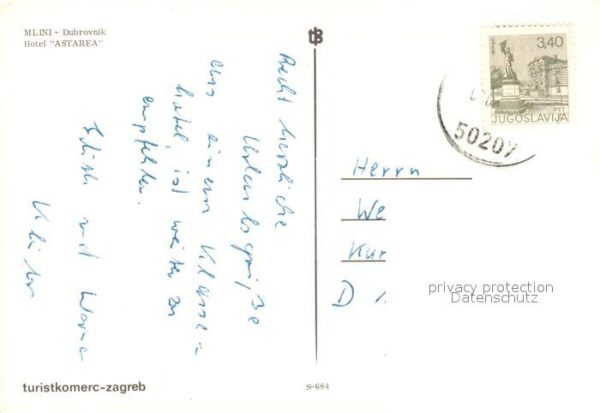 MLINI - Dubrovnik
Hotel "ASTAREA"
Recht herzliche
Urlaubsgrüße
aus einem Klasse-
hotel, ist weiter zu
empfehlen.
Edith und Werner
tB
3,40
JUGOSLAVIJA
50207
Herrn
We
Kur
D
privacy protection
Datenschutz
turistkomerc-zagreb
S-684